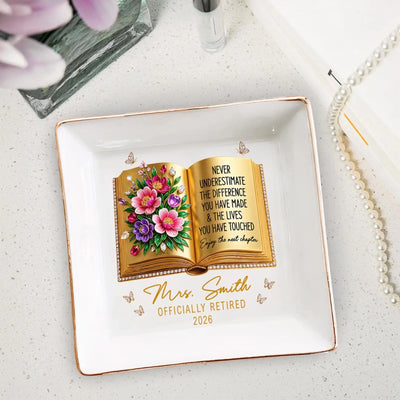 NEVER
UNDERESTIMATE
THE DIFFERENCE
YOU HAVE MADE
& THE LIVES
YOU HAVE TOUCHED
Enjoy the next chapter
Mrs. Smith
OFFICIALLY RETIRED
2026